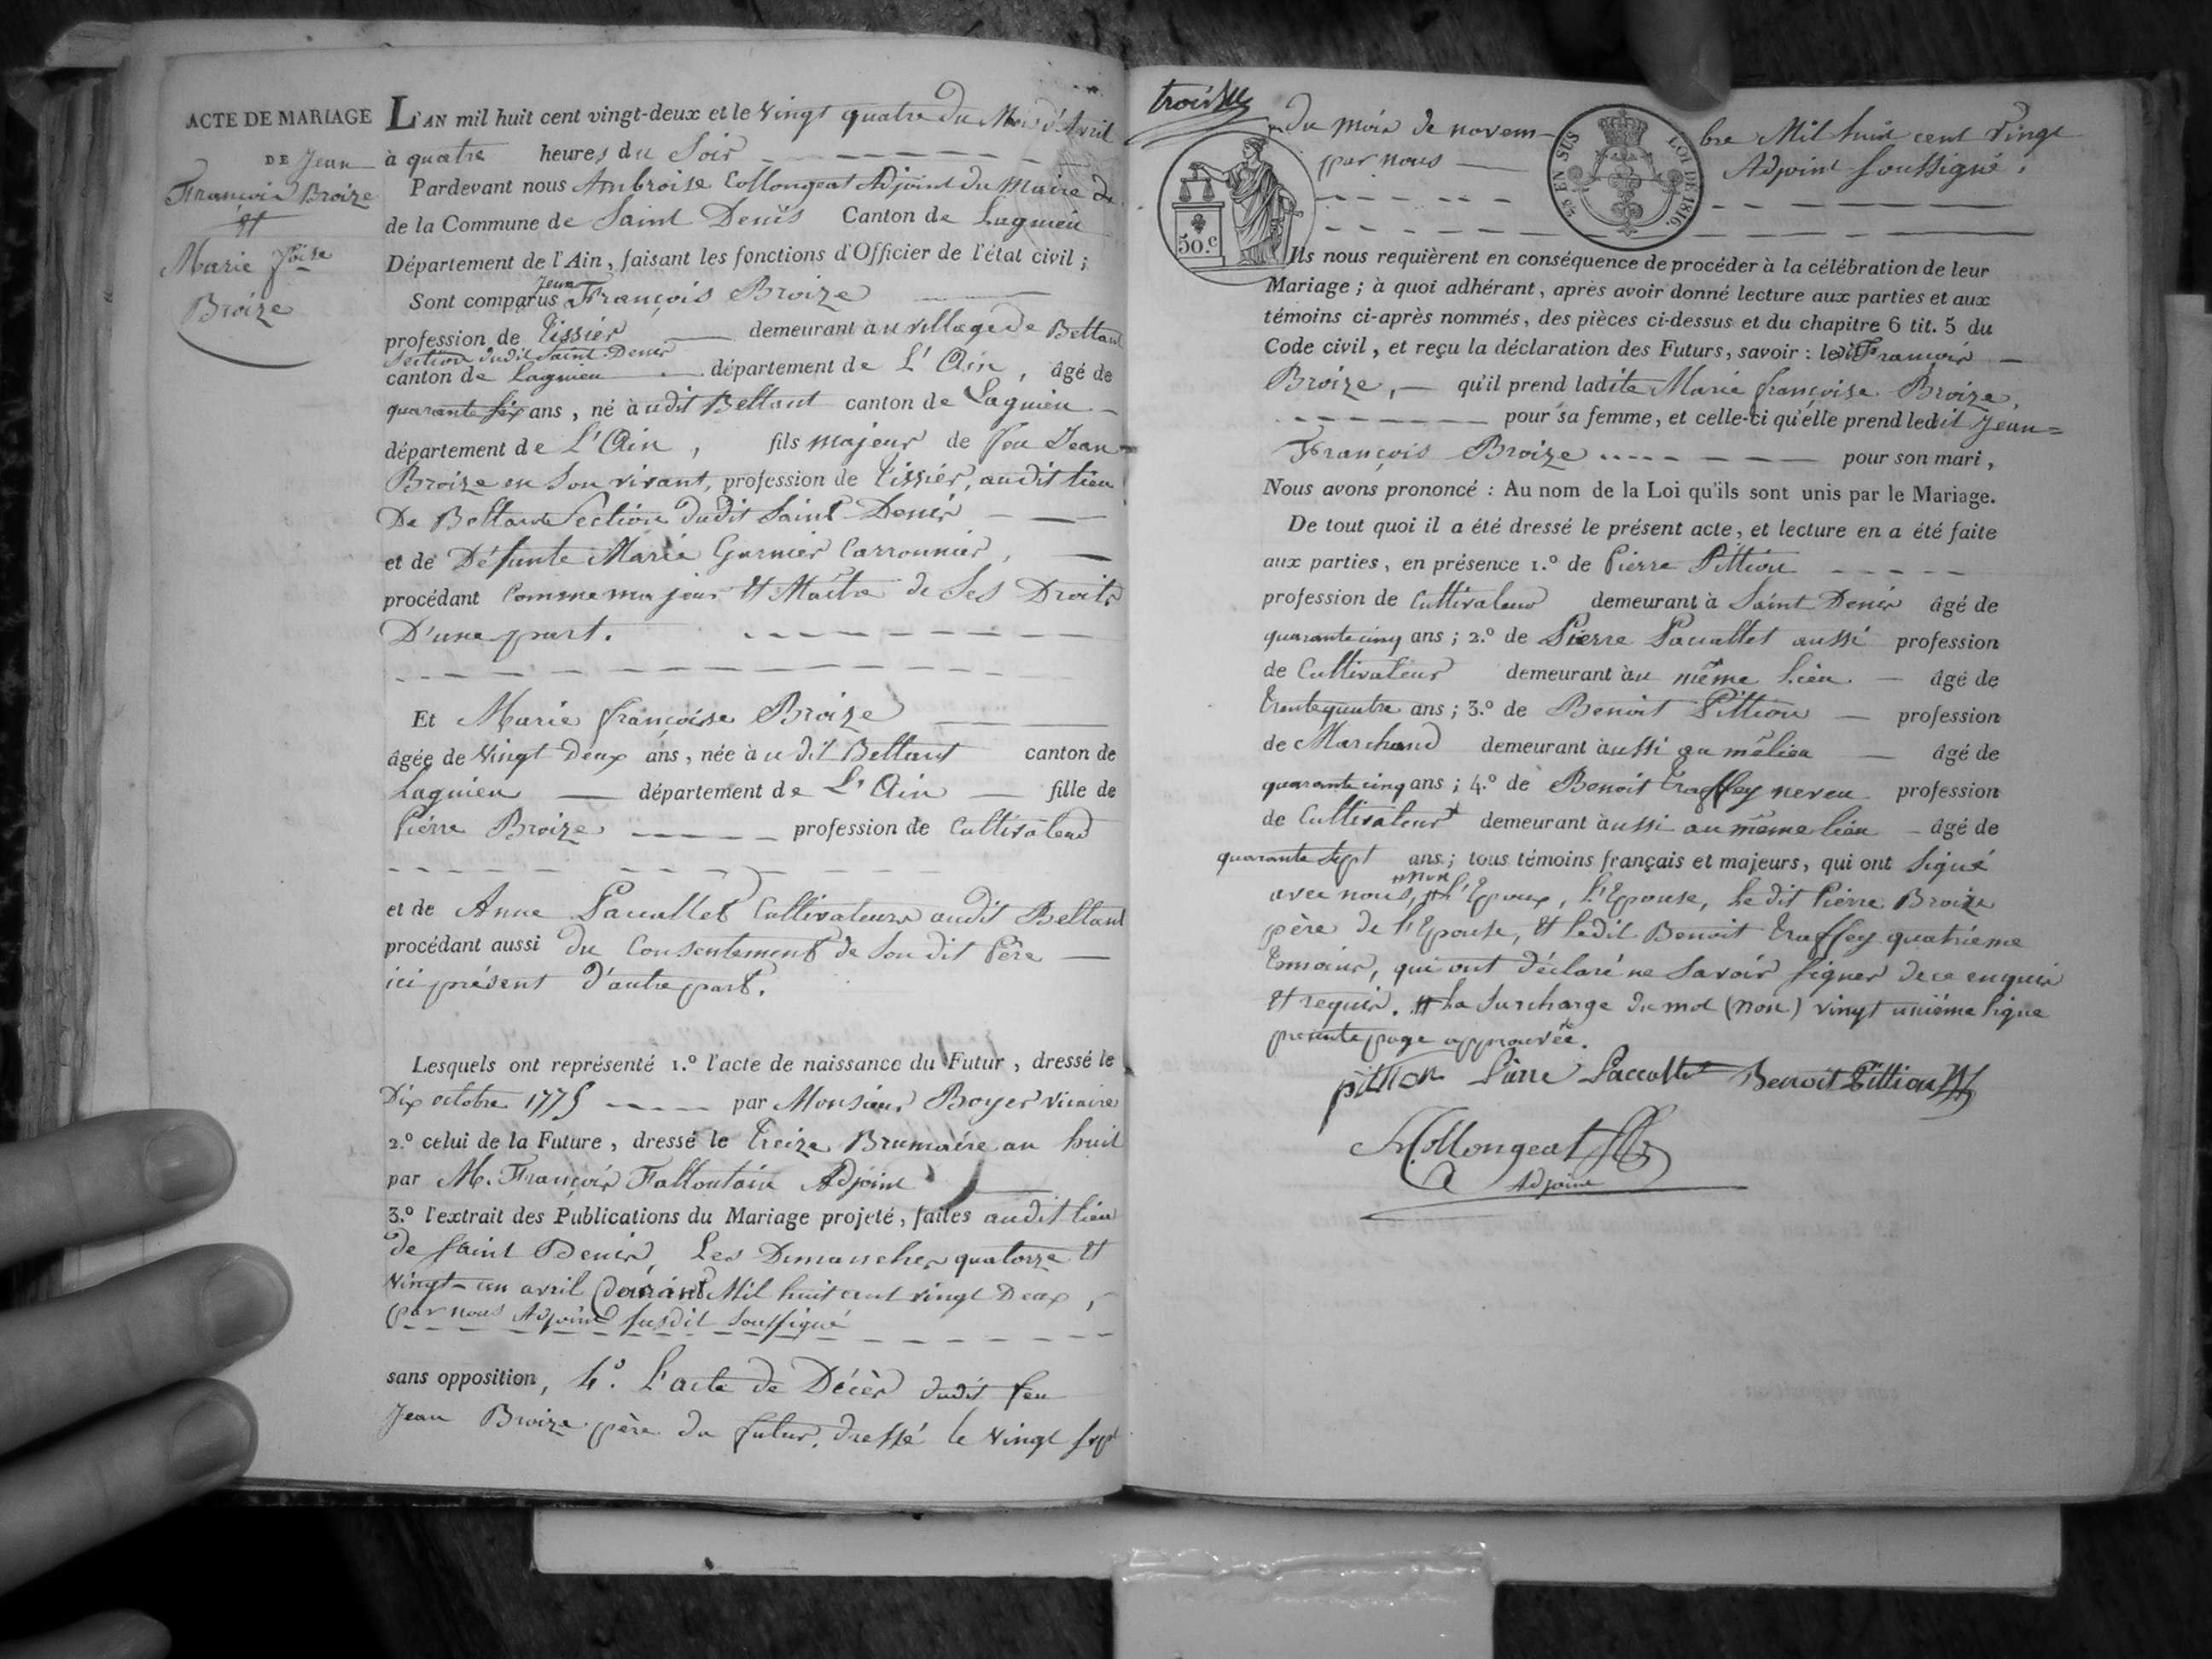 ACTE DE MARIAGE
DE Jean
François Broize
et
Marie fçoise
Broize
L'AN mil huit cent vingt-deux et le vingt quatre du Mois d'Avril
à quatre heures du Soir
Pardevant nous Ambroise Collongeat Adjoint du Maire de
de la Commune de Saint Denis Canton de Lagnieu
Département de l'Ain, faisant les fonctions d'Officier de l'état civil;
Sont comparus Jean François Broize
profession de Tissier demeurant au village de Bettant
Section dudit Saint Denis
canton de Lagnieu département de L'Ain, âgé de
quarante six ans, né audit Bettant canton de Lagnieu
département de L'Ain, fils majeur de feu Jean
Broize en son vivant, profession de Tissier, audit lieu
De Bettant Section dudit Saint Denis
et de Défunte Marie Garnier Carronnier,
procédant Comme majeur et Maître de Ses Droits
D'une part.
Et Marie françoise Broize
âgée de vingt Deux ans, née audit Bettant canton de
Lagnieu département de L'Ain fille de
Pierre Broize profession de Cultivateur
et de Anne Pacuttet Cultivateurs audit Bettant
procédant aussi du Consentement de Son dit Père
ici présent d'autre part.
Lesquels ont représenté 1.º l'acte de naissance du Futur, dressé le
Dix octobre 1775 par Monsieur Boyer vicaire
2.º celui de la Future, dressé le Treize Brumaire an huit
par M. François Adjoint
3.º l'extrait des Publications du Mariage projeté, faites audit lieu
de Saint Denis, Les Dimanches quatorze et
vingt-un avril Courant Mil huit cent vingt Deux,
par nous Adjoint susdit Soussigné
sans opposition, 4.º L'acte de Décès dudit feu
Jean Broize père du futur, dressé le vingt sept
du mois de novem-bre Mil huit cent vingt
par nous Adjoint soussigné.
50.c
25 EN SUS
LOI DE 1816.
Ils nous requièrent en conséquence de procéder à la célébration de leur
Mariage; à quoi adhérant, après avoir donné lecture aux parties et aux
témoins ci-après nommés, des pièces ci-dessus et du chapitre 6 tit. 5 du
Code civil, et reçu la déclaration des Futurs, savoir: ledit François
Broize, qu'il prend ladite Marie françoise Broize,
pour sa femme, et celle-ci qu'elle prend ledit Jean=
François Broize pour son mari,
Nous avons prononcé: Au nom de la Loi qu'ils sont unis par le Mariage.
De tout quoi il a été dressé le présent acte, et lecture en a été faite
aux parties, en présence 1.º de Pierre Pittion
profession de Cultivateur demeurant à Saint Denis âgé de
quarante cinq ans; 2.º de Pierre Pacuttet aussi profession
de Cultivateur demeurant au même Lieu âgé de
Trente quatre ans; 3.º de Benoit Pittion profession
de Marchand demeurant aussi au mê lieu âgé de
quarante cinq ans; 4.º de Benoit Traffey neveu profession
de Cultivateur demeurant aussi au même lieu âgé de
quarante Sept ans; tous témoins français et majeurs, qui ont Signé
avec nous, non l'Epoux, L'Epouse, Le dit Pierre Broize
père de l'Epouse, et ledit Benoit Traffey quatrième
Temoins, qui ont déclaré ne Savoir signer de ce enquis
et requis. La Surcharge du mot (non) vingt unième ligne
présente page approuvée.
pittion Pierre Pacuttet Benoit Pittion
Collongeat
Adjoint